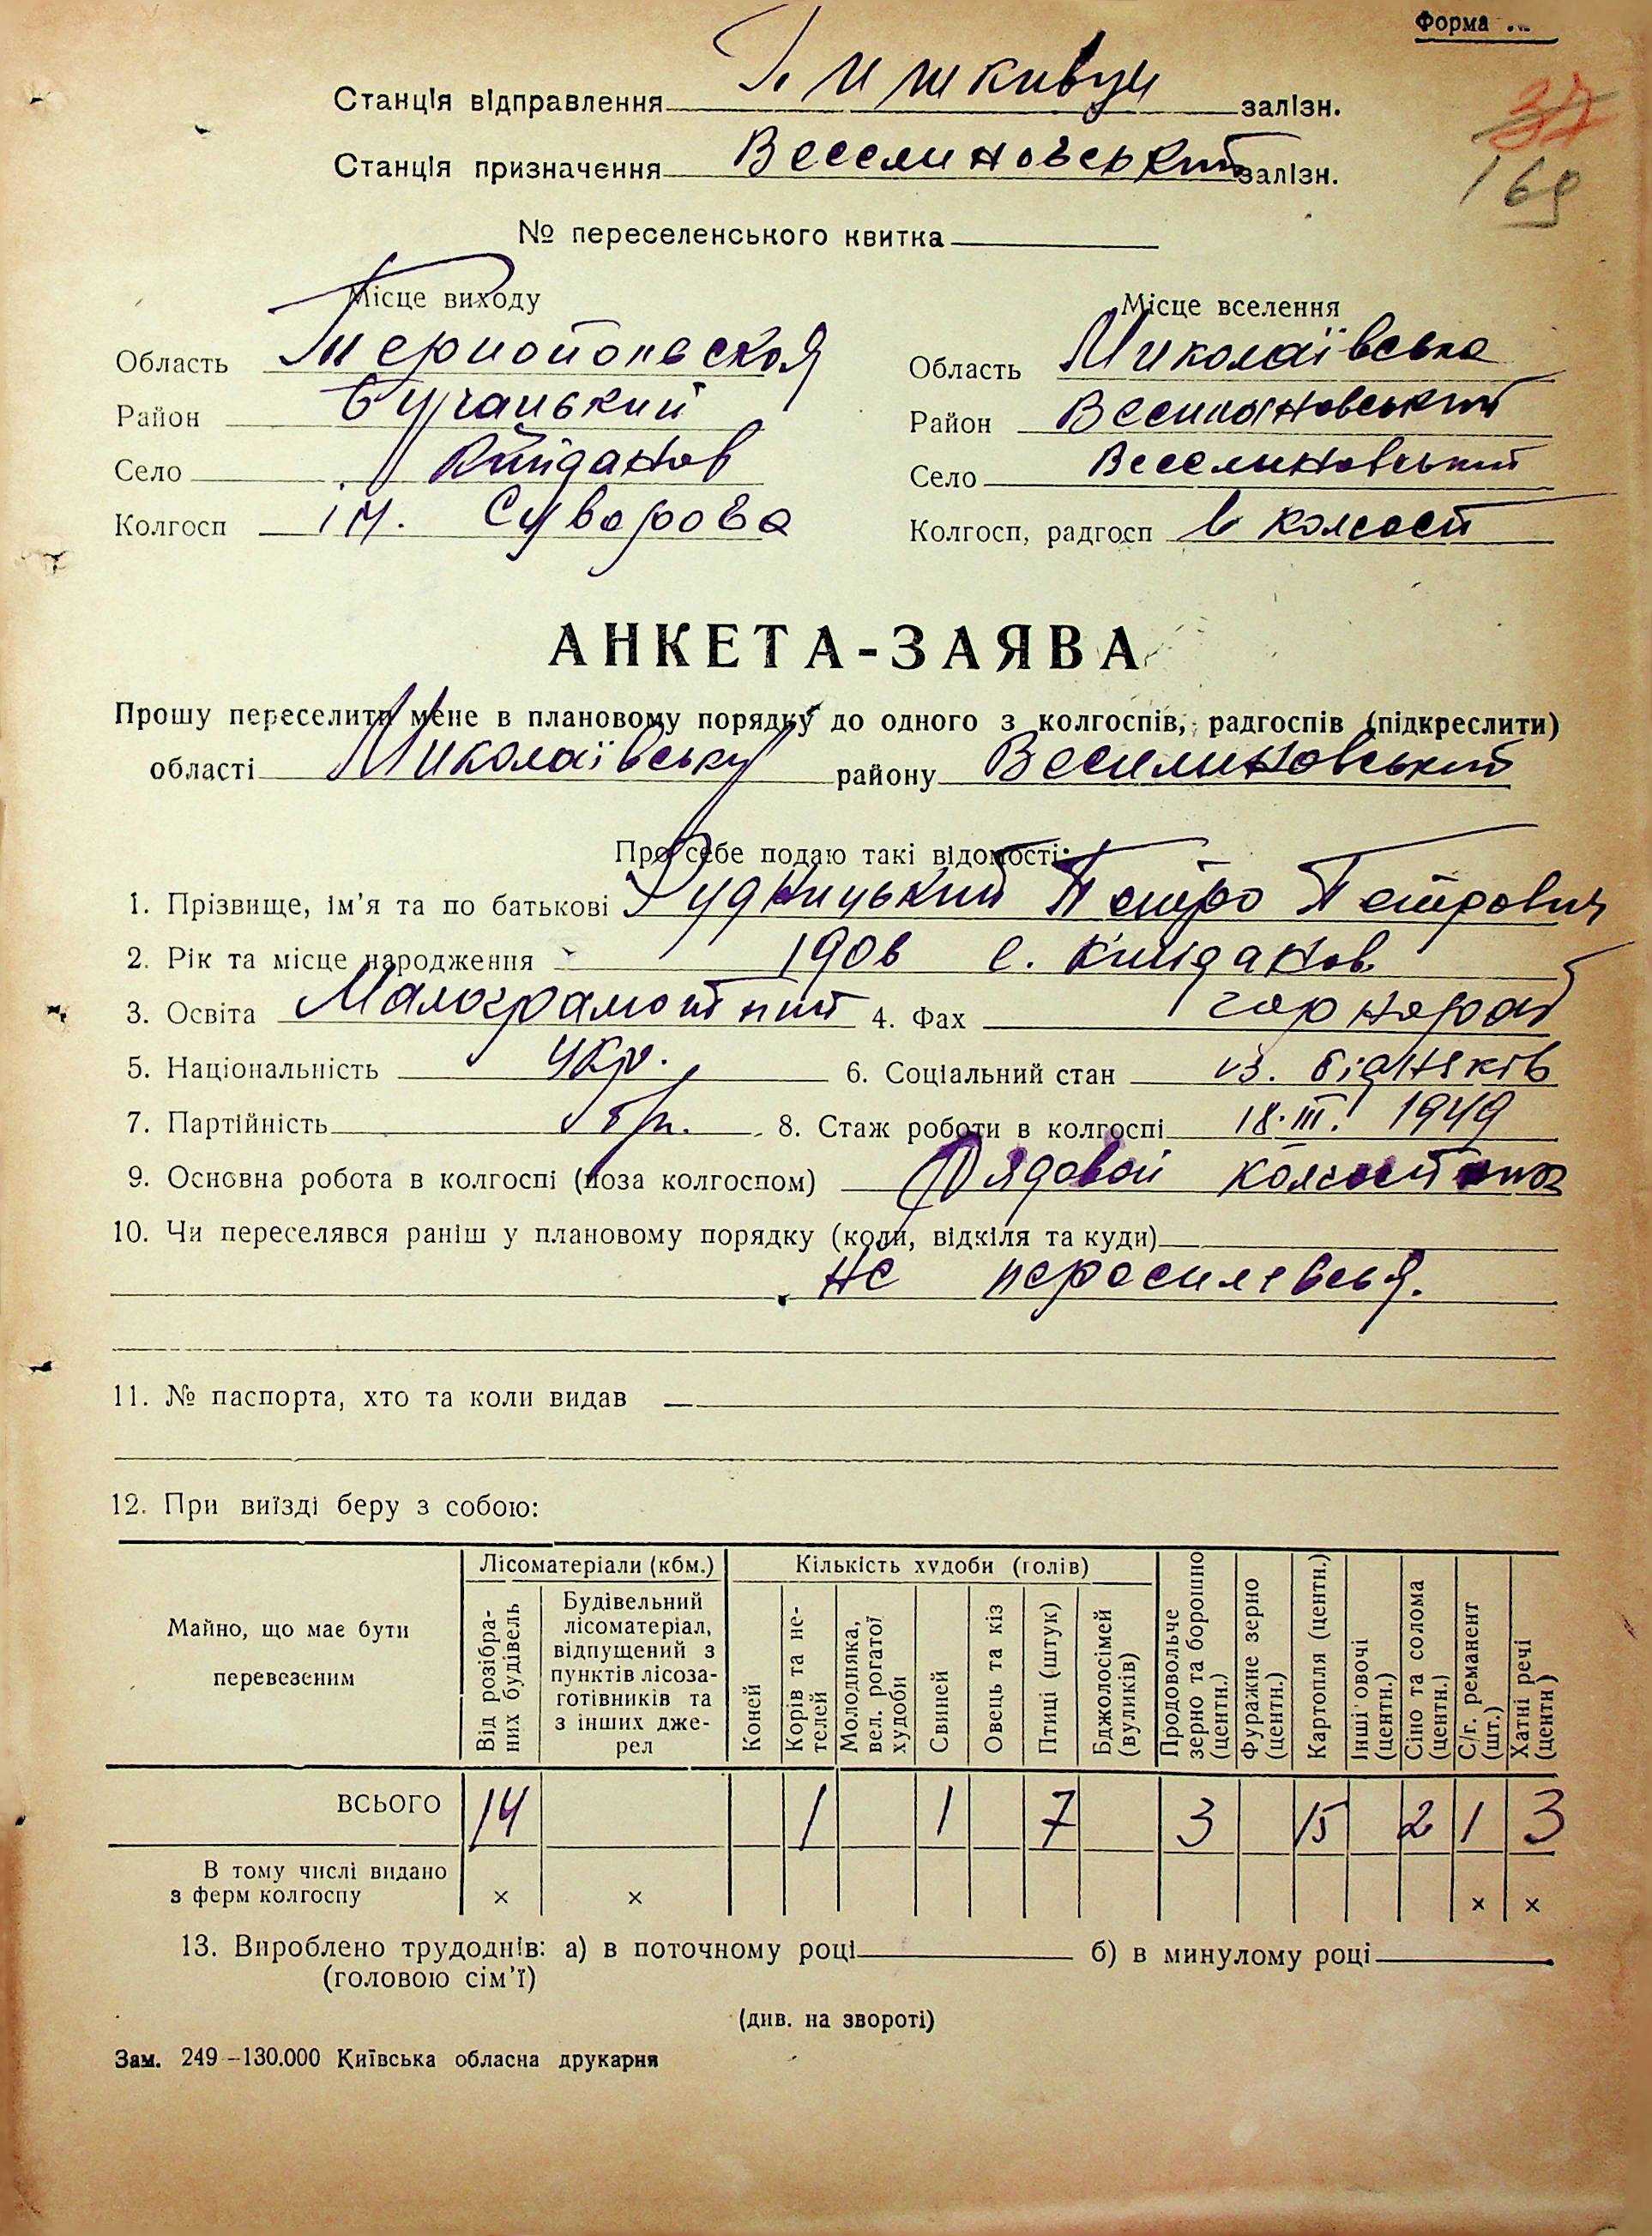 Форма
37
169
Станція відправлення залізн.
Станція призначення Веселиновський залізн.
№ переселенського квитка
Місце виходу Місце вселення
Область Тернопольская Область Миколаївська
Район Бучацький Район Веселиновський
Село Село Веселиновський
Колгосп ім. Суворова Колгосп, радгосп в колгосп
АНКЕТА-ЗАЯВА
Прошу переселити мене в плановому порядку до одного з колгоспів, радгоспів (підкреслити)
області Миколаївську району Веселиновський
Про себе подаю такі відомості:
1. Прізвище, ім'я та по батькові Рудницький Петро Петрович
2. Рік та місце народження 1906 с.
3. Освіта Малограмотний 4. Фах
5. Національність Укр. 6. Соціальний стан из. бідняків
7. Партійність 8. Стаж роботи в колгоспі 18.III. 1949
9. Основна робота в колгоспі (поза колгоспом) Рядовой
10. Чи переселявся раніш у плановому порядку (коли, відкіля та куди)
не
11. № паспорта, хто та коли видав
12. При виїзді беру з собою:
Майно, що має бути перевезеним
Лісоматеріали (кбм.)
Від розібраних будівель
Будівельний лісоматеріал, відпущений з пунктів лісозаготівників та з інших джерел
Кількість худоби (голів)
Коней
Корів та нетелей
Молодняка, вел. рогатої худоби
Свиней
Овець та кіз
Птиці (штук)
Бджолосімей (вуликів)
Продовольче зерно та борошно (центн.)
Фуражне зерно (центн.)
Картопля (центн.)
Інші овочі (центн.)
Сіно та солома (центн.)
С/г. реманент (шт.)
Хатні речі (центн)
ВСЬОГО 14 1 1 7 3 15 2 1 3
В тому числі видано
з ферм колгоспу × × × ×
13. Вироблено трудоднів: а) в поточному році б) в минулому році
(головою сім'ї)
(див. на звороті)
Зам. 249–130.000 Київська обласна друкарня